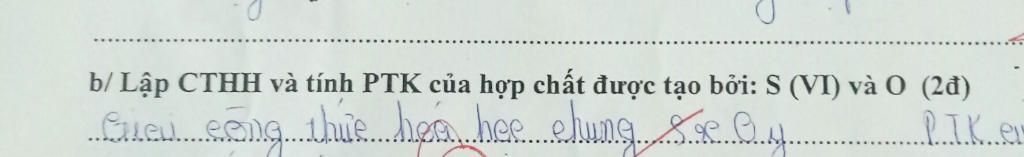 b/ Lập CTHH và tính PTK của hợp chất được tạo bởi: S (VI) và O (2đ)
công thức hoá học chung SxOy PTK